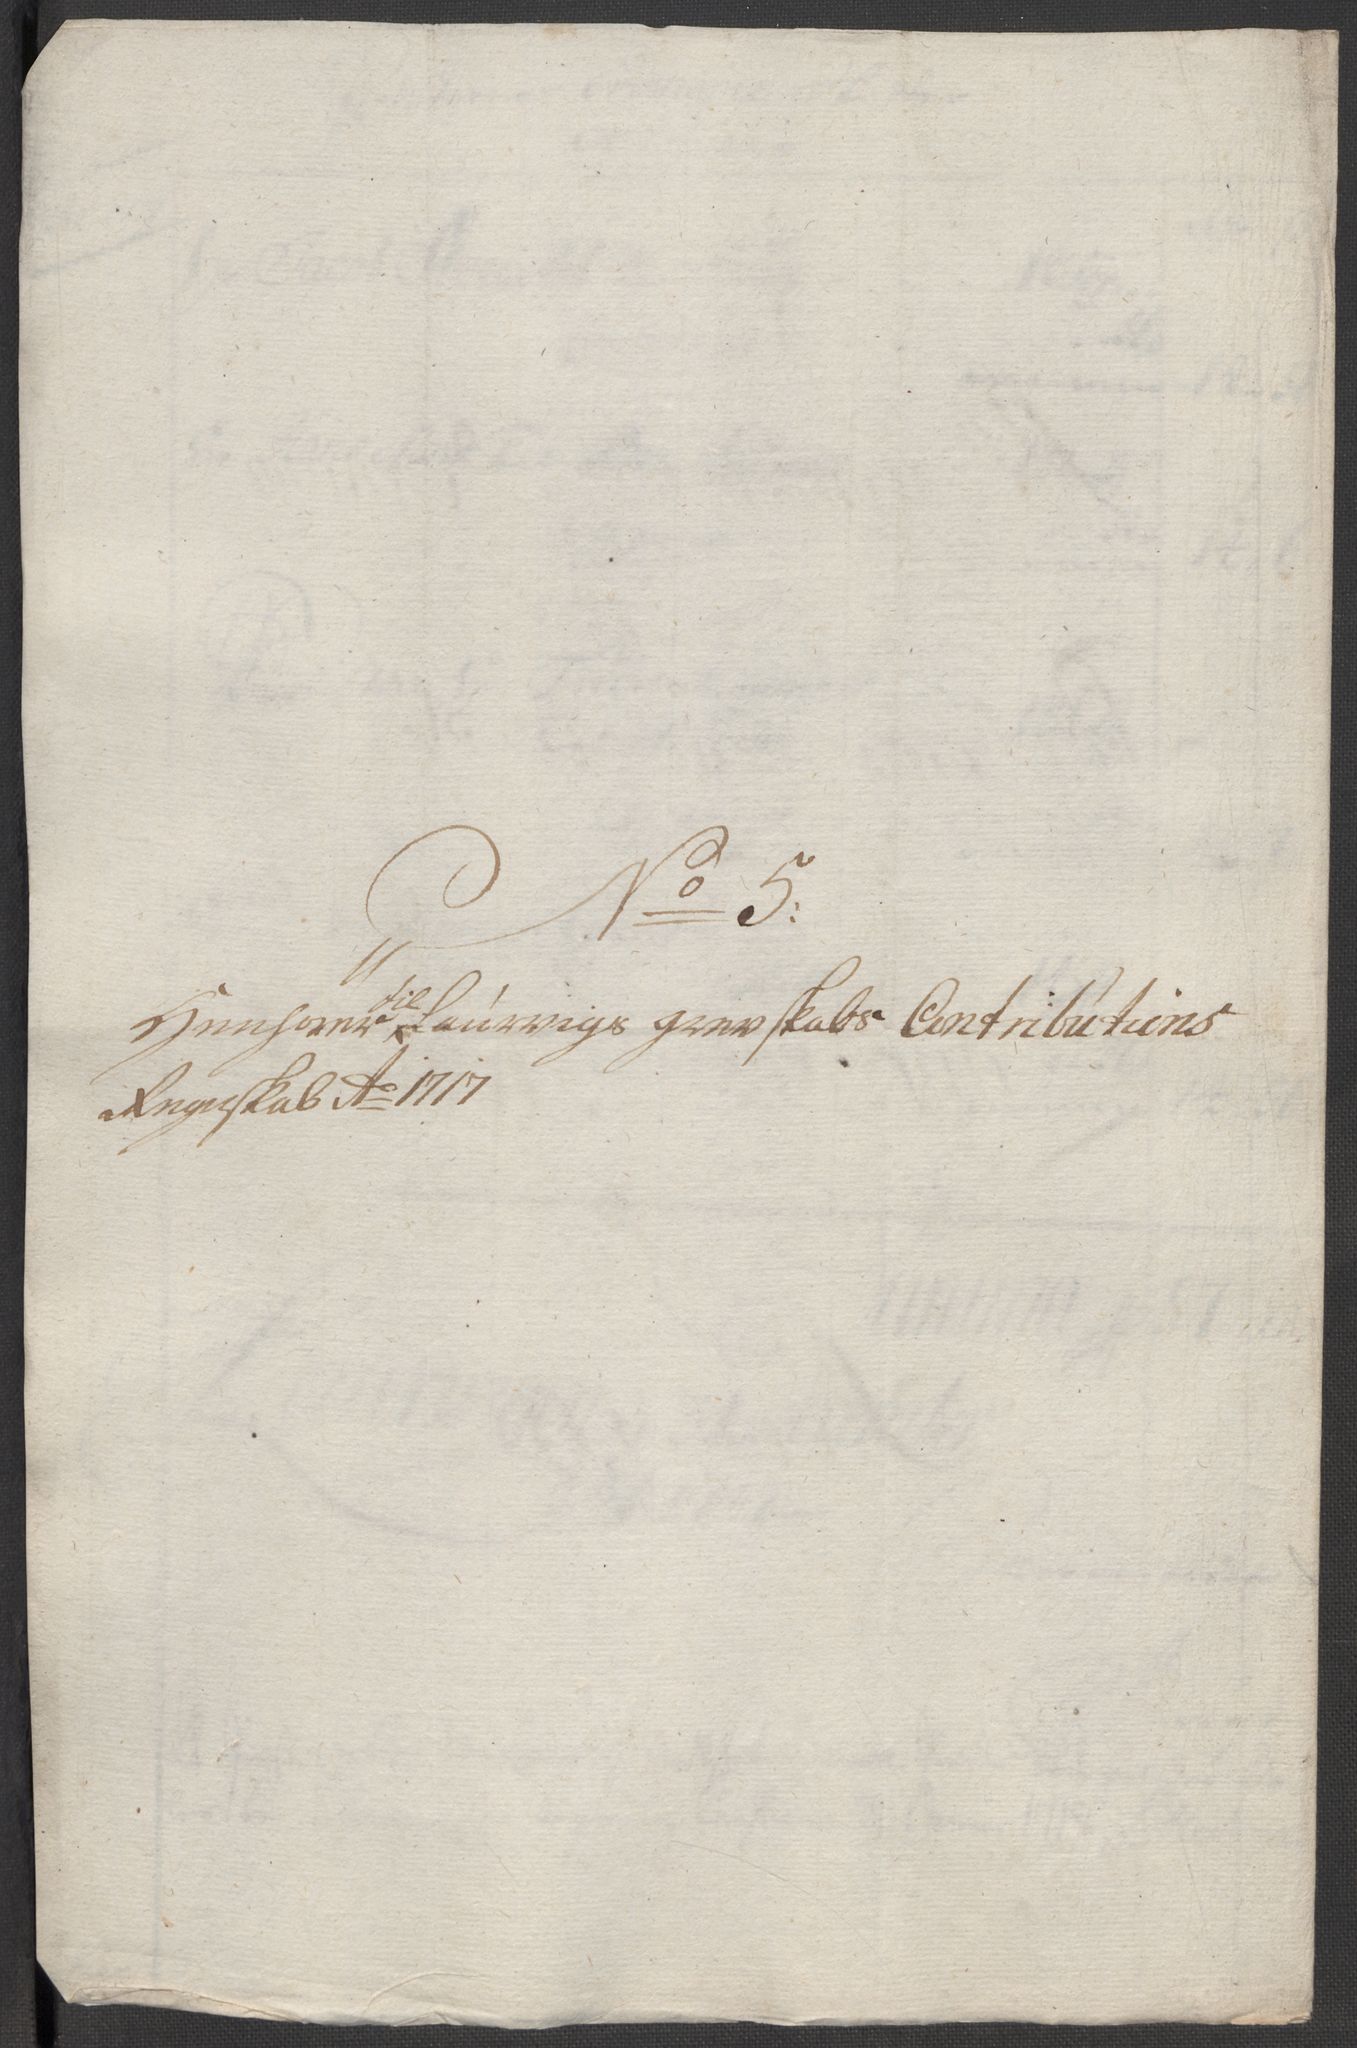 No 5:
Henhører til Laurvigs grevskabs Contributions
Regnskab Ao 1717